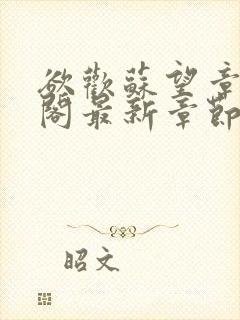 欲歡蘇望章
閣最新章節
昭文